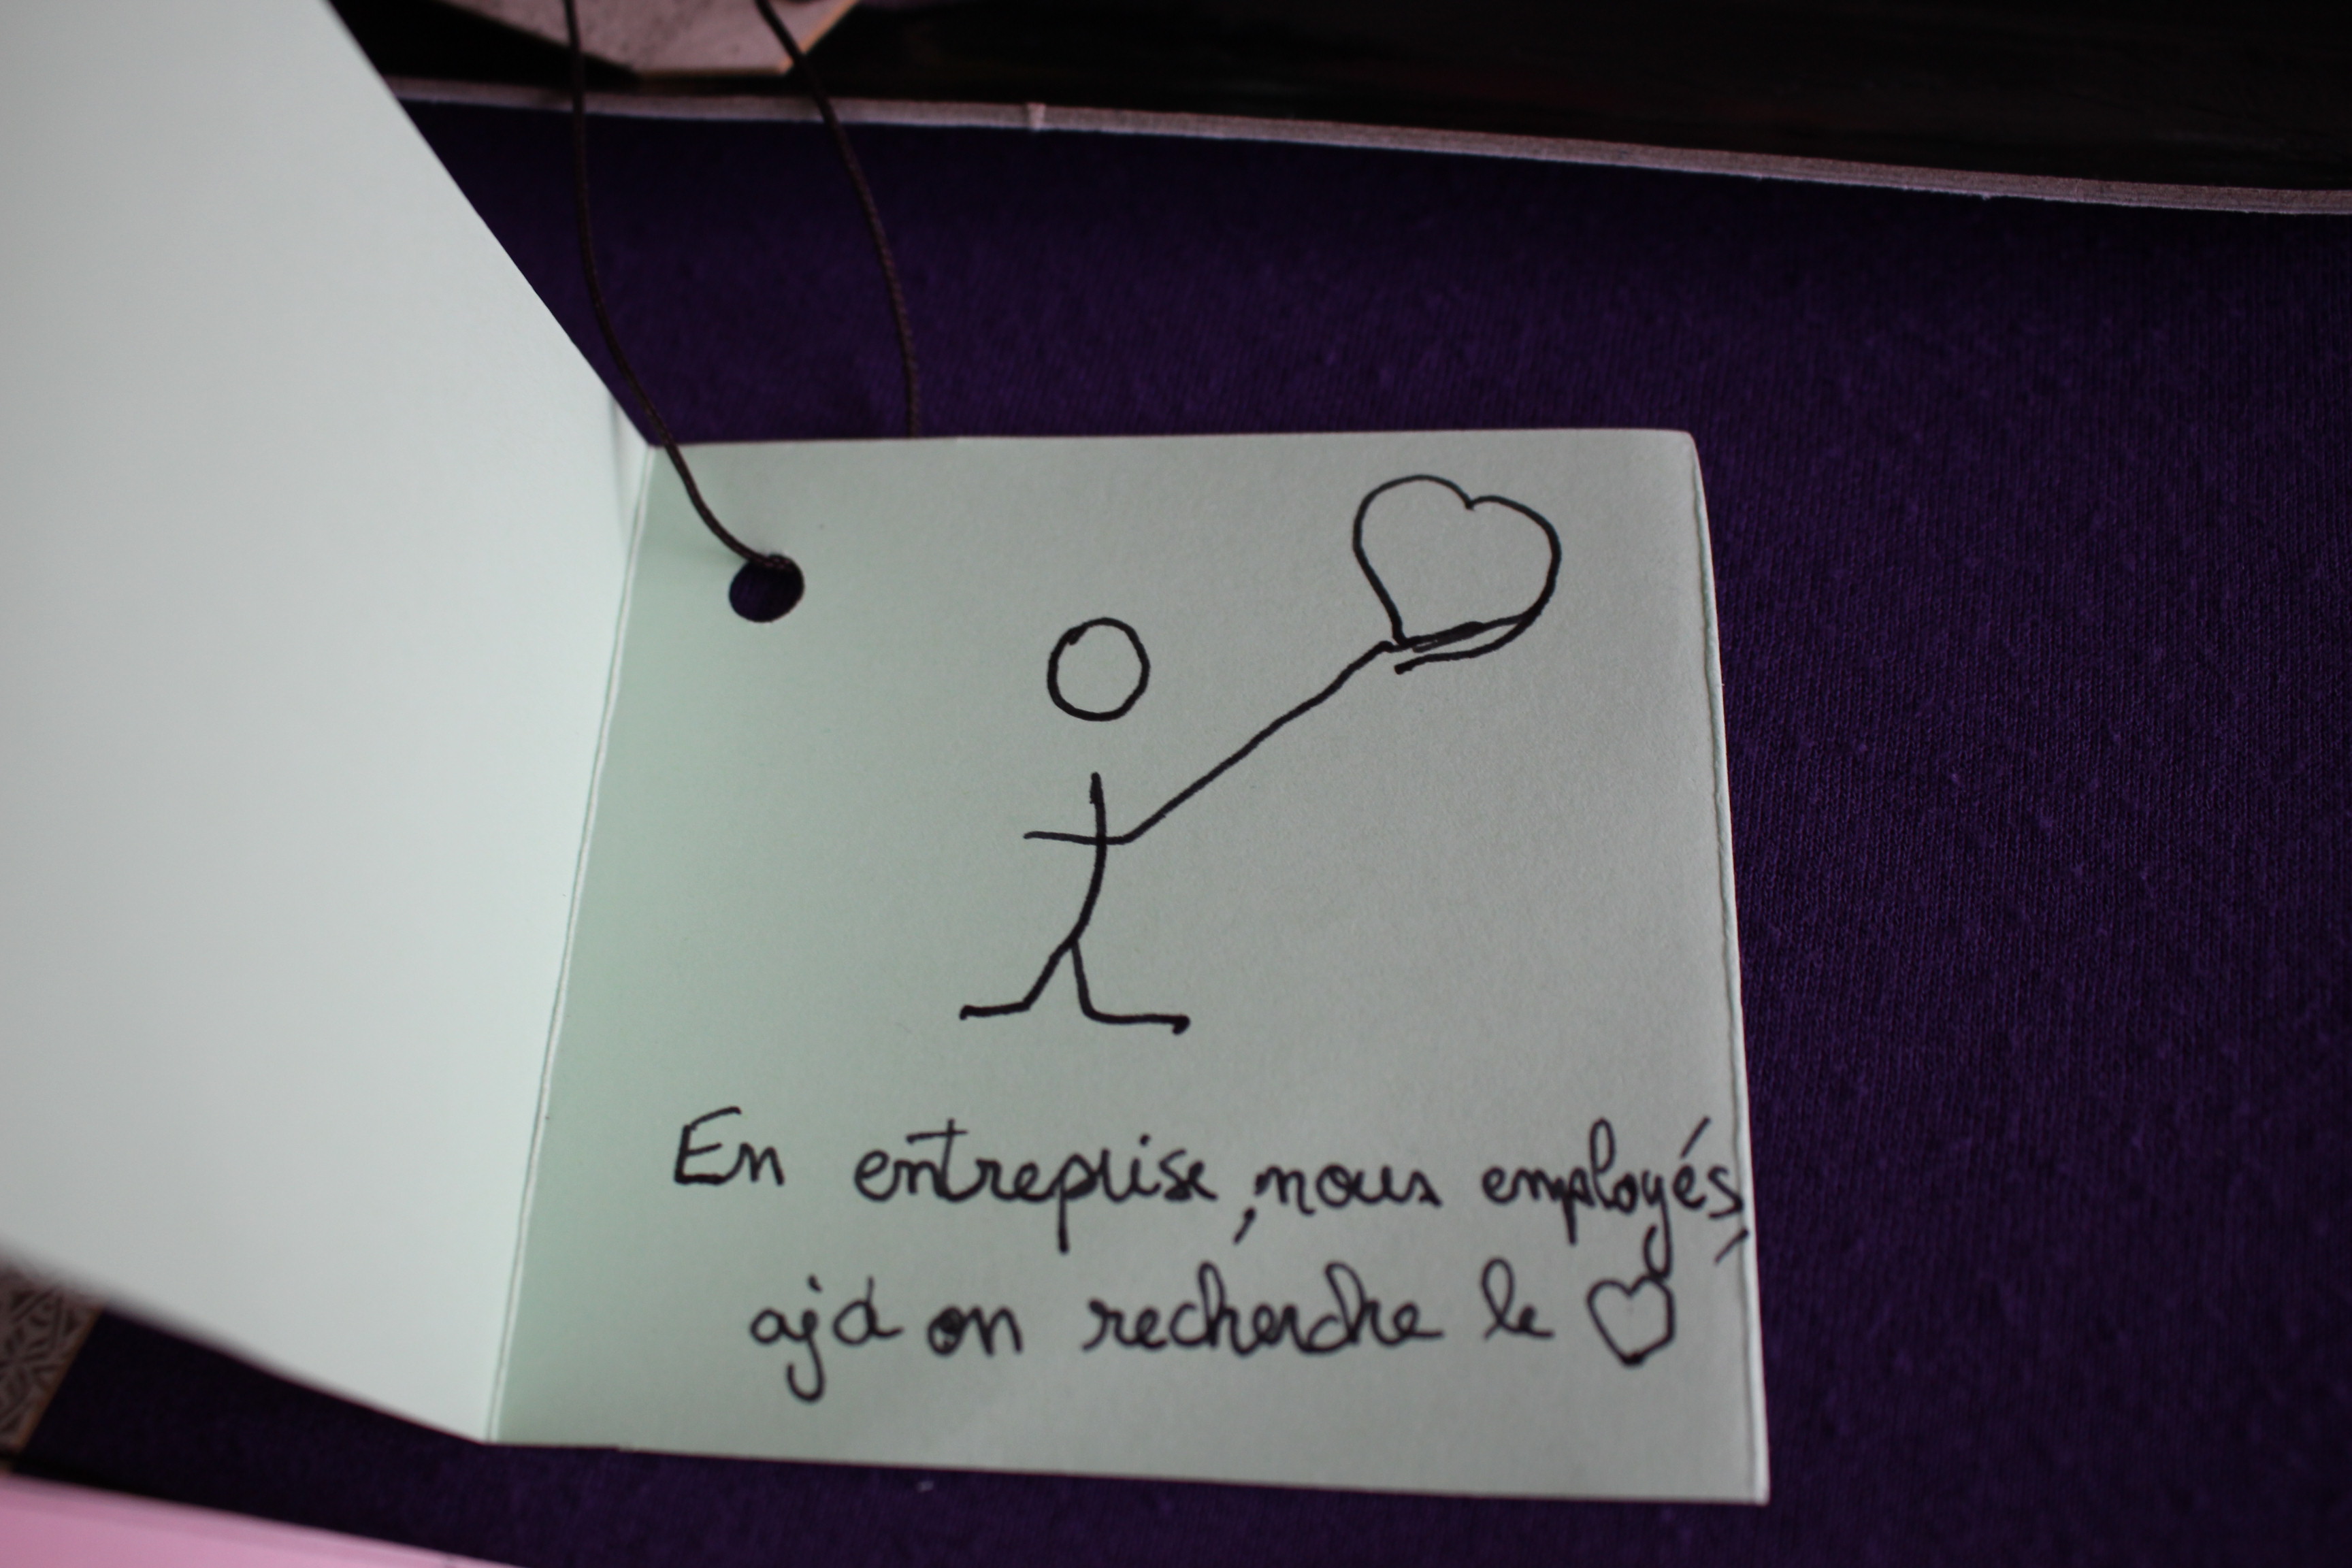 En entreprise, nous employés,
ajd on recherche le ♡